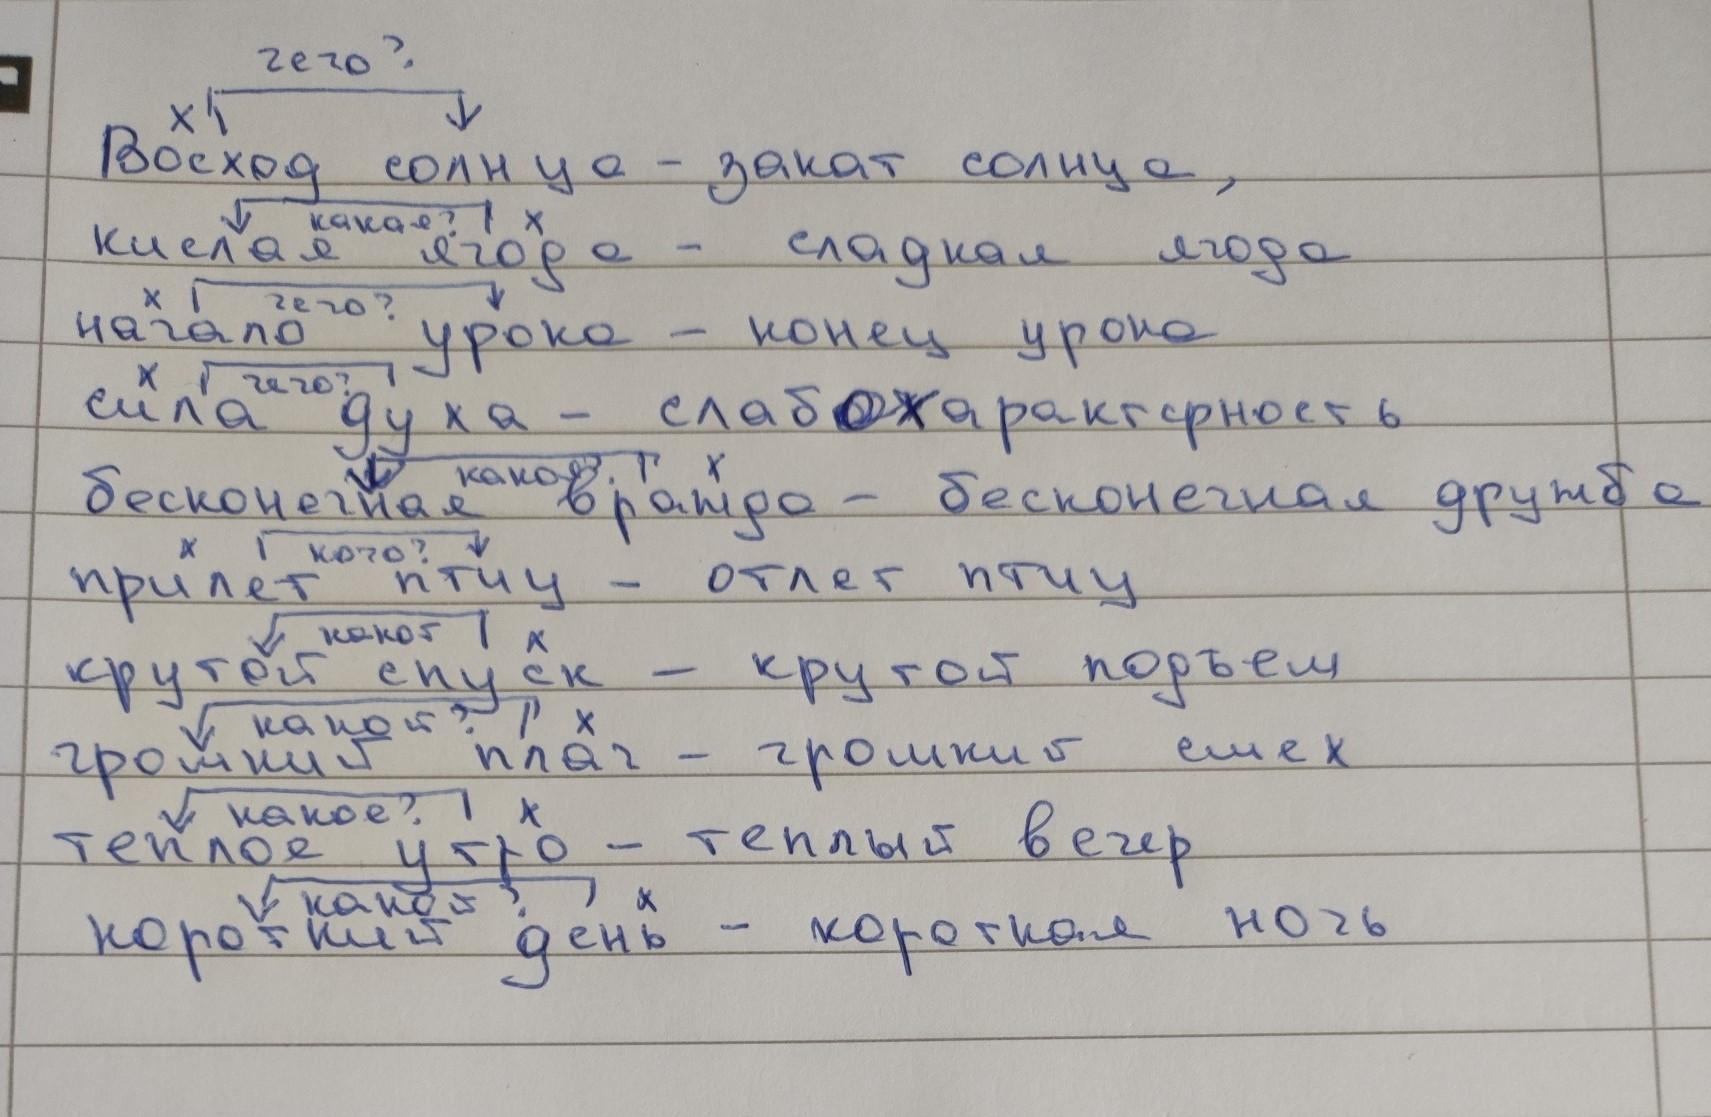 чего?
х
Восход солнца - закат солнца,
какая? х
кислая ягода - сладкая ягода
х чего?
начало урока - конец урока
х чего?
сила духа - слабохарактерность
какая? х
бесконечная вражда - бесконечная дружба
х кого?
прилет птиц - отлет птиц
какой х
крутой спуск - крутой подъем
какой? х
громкий плач - громкий смех
какое? х
теплое утро - теплый вечер
какой? х
короткий день - короткая ночь